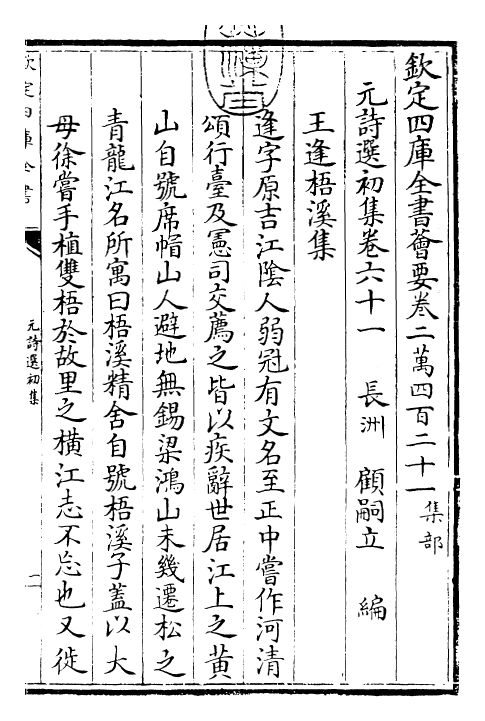 欽定四庫全書薈要卷二萬四百二十一 集部
元詩選初集卷六十一 長洲 顧嗣立 編
王逢梧溪集
逢字原吉江陰人弱冠有文名至正中嘗作河清
頌行臺及憲司交薦之皆以疾辭世居江上之黄
山自號席帽山人避地無錫梁鴻山未幾遷松之
青龍江名所寓曰梧溪精舍自號梧溪子蓋以大
母徐嘗手植雙梧於故里之横江志不忘也又徙
欽定四庫全書
元詩選初集